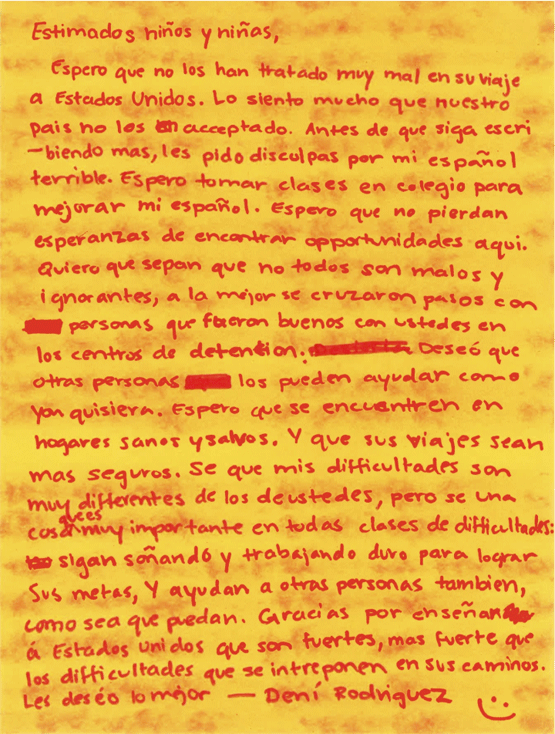 Estimados niños y niñas,
Espero que no los han tratado muy mal en su viaje
a Estados Unidos. Lo siento mucho que nuestro
pais no los acceptado. Antes de que siga escri
-biendo mas, les pido disculpas por mi español
terrible. Espero tomar clases en colegio para
mejorar mi español. Espero que no pierdan
esperanzas de encontrar opportunidades aqui.
Quiero que sepan que no todos son malos y
ignorantes, a la mejor se cruzaron pasos con
personas que fueron buenos con ustedes en
los centros de detention. Deseó que
otras personas los pueden ayudar como
yo quisiera. Espero que se encuentren en
hogares sanos y salvos. Y que sus viajes sean
mas seguros. Se que mis difficultades son
muy differentes de los de ustedes, pero se una
cosa que es muy importante en todas clases de difficultades:
sigan soñando y trabajando duro para lograr
sus metas, Y ayudan a otras personas tambien,
como sea que puedan. Gracias por enseñar
á Estados Unidos que son fuertes, mas fuerte que
los difficultades que se intreponen en sus caminos.
Les deséo lo mejor — Dení Rodriguez :)